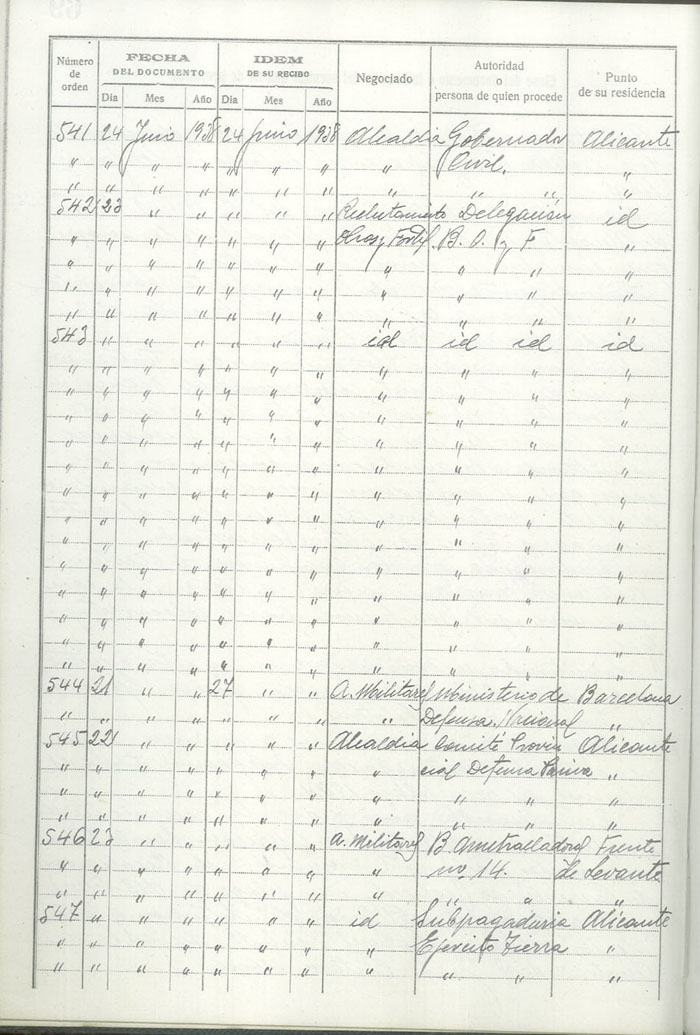 Número de orden | FECHA DEL DOCUMENTO | IDEM DE SU RECIBO | Negociado | Autoridad o persona de quien procede | Punto de su residencia
Dia Mes Año Dia Mes Año
541 24 Junio 1938 24 Junio 1938 Alcaldia Gobernador Alicante
" " " " " " " " Civil. "
" " " " " " " " " " "
542 23 " " " " " Reclutamiento Delegación id
" " " " " " " Obras y Fortif. B. O. y F "
" " " " " " " " " " "
" " " " " " " " " " "
" " " " " " " " " " "
543 " " " " " " id id id id
" " " " " " " " " " "
" " " " " " " " " " "
" " " " " " " " " " "
" " " " " " " " " " "
" " " " " " " " " " "
" " " " " " " " " " "
" " " " " " " " " " "
" " " " " " " " " " "
" " " " " " " " " " "
" " " " " " " " " " "
" " " " " " " " " " "
" " " " " " " " " " "
" " " " " " " " " " "
544 21 " " 27 " " A. Militares Ministerio de Barcelona
" " " " " " " " Defensa Nacional "
545 22 " " " " " Alcaldia Comité Provin Alicante
" " " " " " " " cial Defensa Pasiva "
" " " " " " " " " " "
" " " " " " " " " " "
546 23 " " " " " A. Militares B. Ametralladoras Frente
" " " " " " " " nº 14. de Levante
" " " " " " " " " " "
547 " " " " " " id Subpagaduria Alicante
" " " " " " " " Ejercito Tierra "
" " " " " " " " " " "